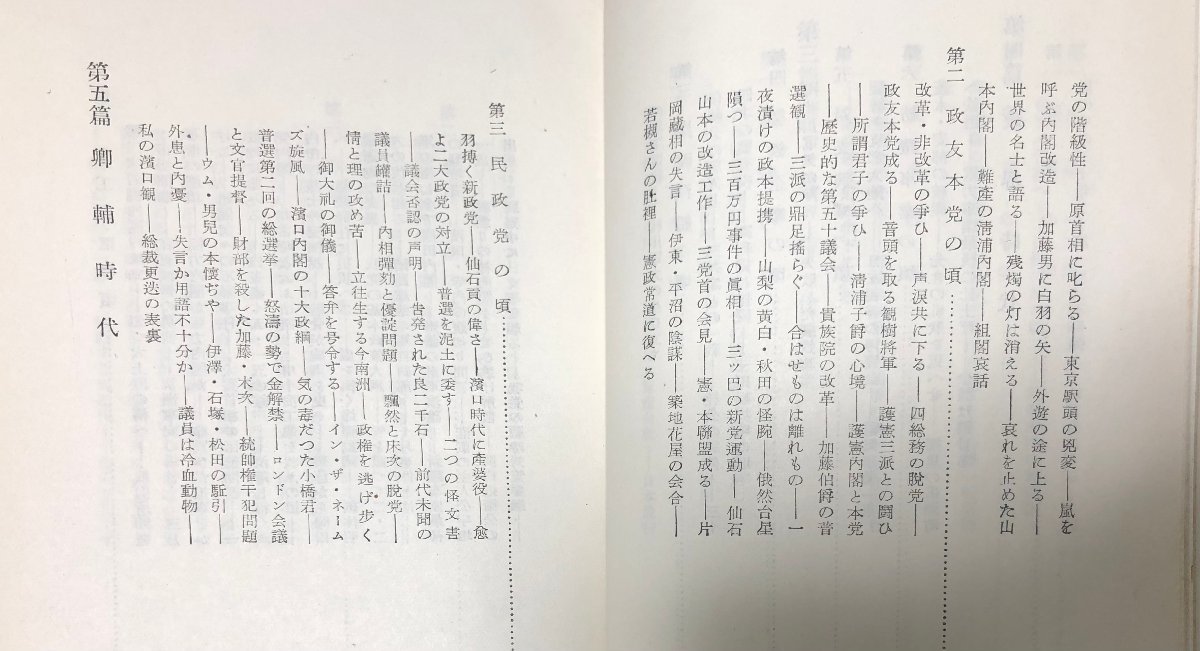 党の階級性――原首相に叱らる――東京駅頭の兇変――嵐を
呼ぶ内閣改造――加藤男に白羽の矢――外遊の途に上る――
世界の名士と語る――残燭の灯は消える――哀れを止めた山
本内閣――難産の清浦内閣――組閣哀話
第二 政友本党の頃
改革・非改革の爭ひ――声涙共に下る――四総務の脱党――
政友本党成る――音頭を取る観樹將軍――護憲三派との闘ひ
――所謂君子の爭ひ――清浦子爵の心境――護憲内閣と本党
――歴史的な第五十議会――貴族院の改革――加藤伯爵の普
選観――三派の鼎足搖らぐ――合はせものは離れもの――一
夜漬けの政本提携――山梨の黄白・秋田の怪腕――俄然台星
隕つ――三百万円事件の眞相――三ッ巴の新党運動――仙石
山本の改造工作――三党首の会見――憲・本聯盟成る――片
岡蔵相の失言――伊東・平沼の陰謀――築地花屋の会合――
若槻さんの肚裡――憲政常道に復へる
第三 民政党の頃
羽搏く新政党――仙石貢の偉さ――濱口時代に産婆役――愈
よ二大政党の対立――普選を泥土に委す――二つの怪文書
――議会否認の声明――告発された良二千石――前代未聞の
議員罐詰――内相彈劾と優諚問題――飄然と床次の脱党――
情と理の攻め苦――立往生する今南洲――政権を逃げ歩く
――御大礼の御儀――答弁を号令する――イン・ザ・ネーム
ズ旋風――濱口内閣の十大政綱――気の毒だつた小橋君――
普選第二回の総選挙――怒濤の勢で金解禁――ロンドン会議
と文官提督――財部を殺した加藤・末次――統帥権干犯問題
――ウム・男兒の本懷ぢや――伊澤・石塚・松田の駈引――
外患と内憂――失言か用語不十分か――議員は冷血動物――
私の濱口観――総裁更迭の表裏
第五篇 卿輔時代